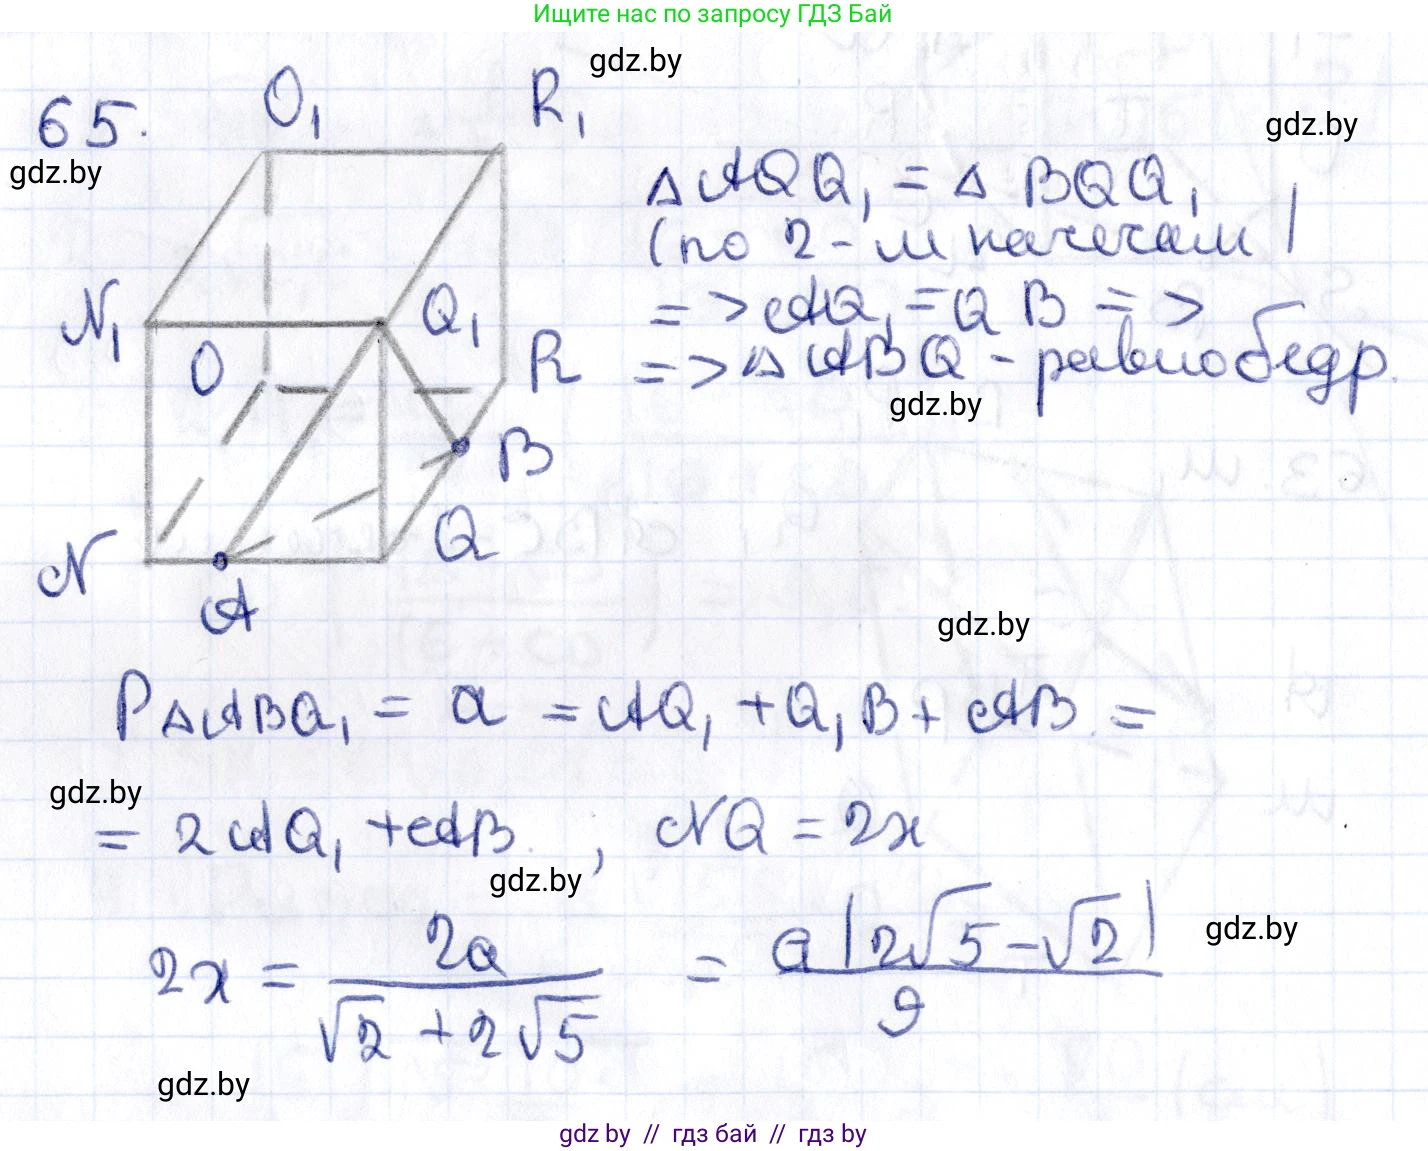 Ищите нас по запросу ГДЗ Бай
gdz.by
65.
gdz.by
O₁
R₁
gdz.by
△AQQ₁ = △BQQ₁
(по 2-м катетам)
=> AQ₁ = QB =>
=> △ABQ - равнобедр.
gdz.by
N₁
Q₁
O
R
B
Q
N
A
gdz.by
P△ABQ₁ = a = AQ₁ + Q₁B + AB =
gdz.by
= 2AQ₁ + AB , NQ = 2x
gdz.by
2x = 2a / (√2 + 2√5) = a(2√5 - √2) / 9
gdz.by
gdz.by
gdz by // гдз бай // гдз by